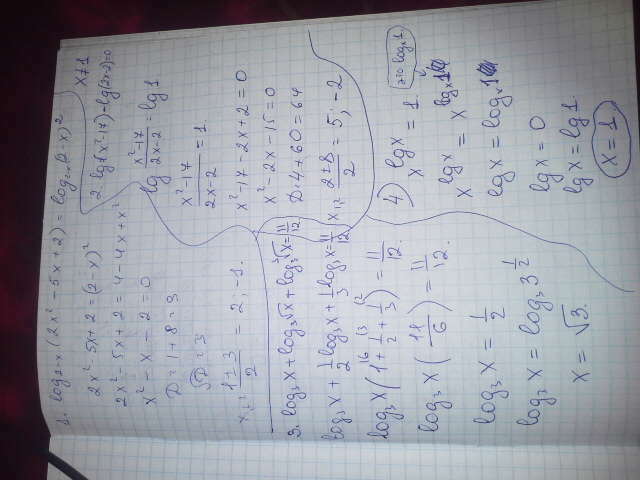 1. log₂₋ₓ(2x²-5x+2) = log₂₋ₓ(2-x)²
2x²-5x+2 = (2-x)²
2x²-5x+2 = 4-4x+x²
x²-x-2=0
D=1+8=9
√D=3
x₁,₂ 1±3/2 = 2; -1.
x≠1
2. lg(x²-17)-lg(2x-2)=0
lg x²-17/2x-2 = lg1
x²-17/2x-2 = 1.
x²-17-2x+2=0
x²-2x-15=0
D=4+60=64
x₁,₂ 2±8/2 = 5; -2
3. log₃x+log₃√x+log₃³√x=11/12
log₃x+1/2log₃x+1/3log₃x=11/12
log₃x(1+1/2+1/3)=11/12.
log₃x(11/6)=11/12.
log₃x=1/2
log₃x=log₃3^1/2
x=√3.
4) x^lgx = 1
это logₓ1
x^lgx = x^logₓ1
lgx = logₓ1
lgx = 0
lgx = lg1
x=1